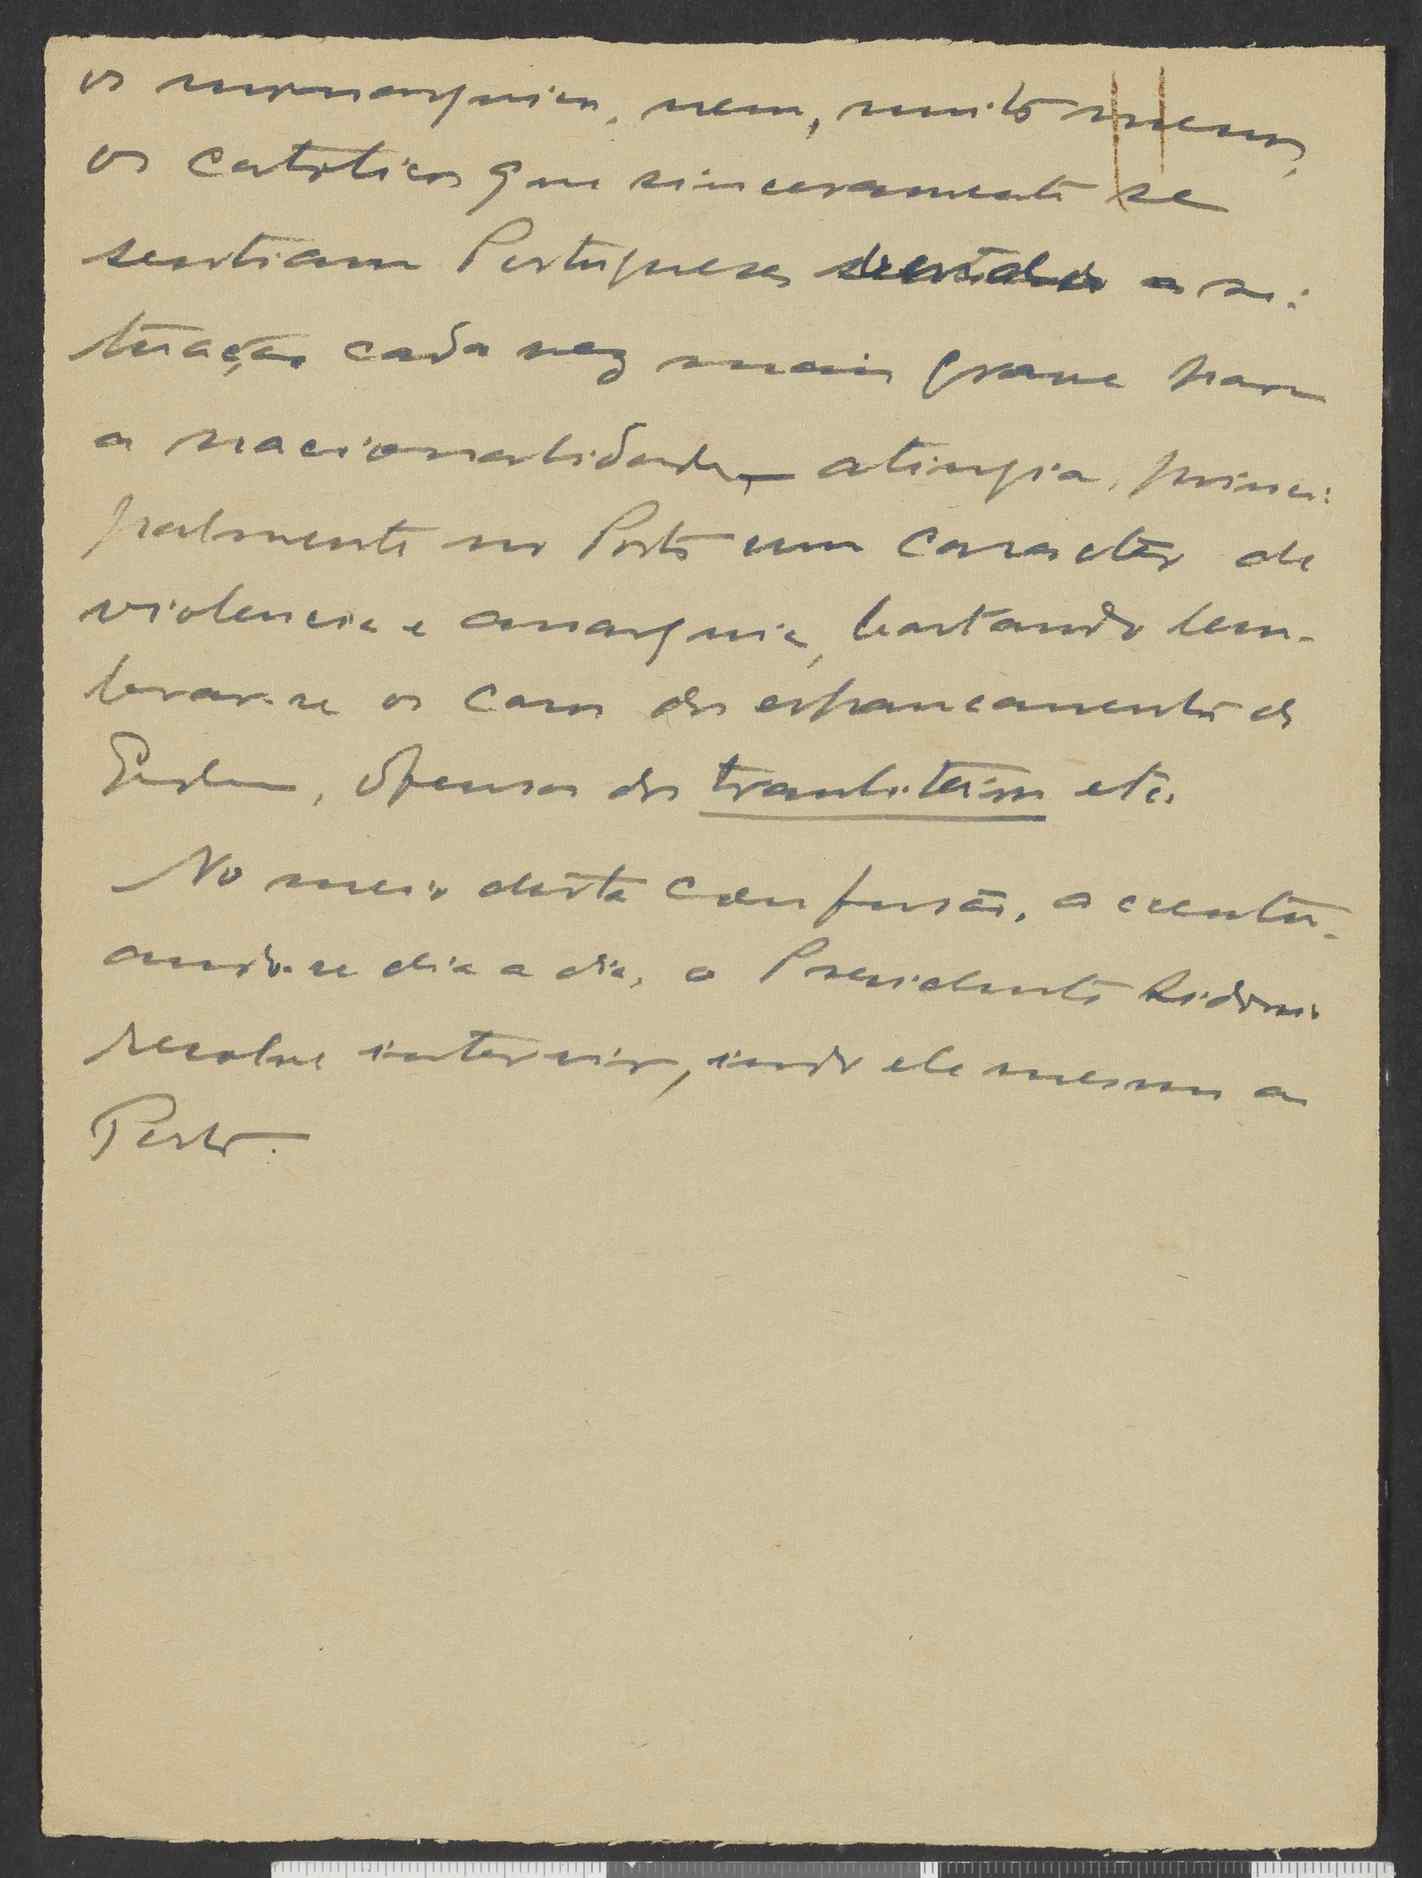 os monarquicos, nem, muito menos,
os catolicos que sinceramente se
sentiam Portugueses a si-
tuação cada vez mais grave para
a nacionalidade, atingia, princi-
palmente no Porto um caracter de
violencia e anarquia, bastando lem-
brar-se os casos do espancamento do
ofensas dos trauliteiros etc.
No meio desta confusão, acentu-
ando-se dia a dia, o Presidente Sidonio
resolve intervir, indo ele mesmo ao
Porto.